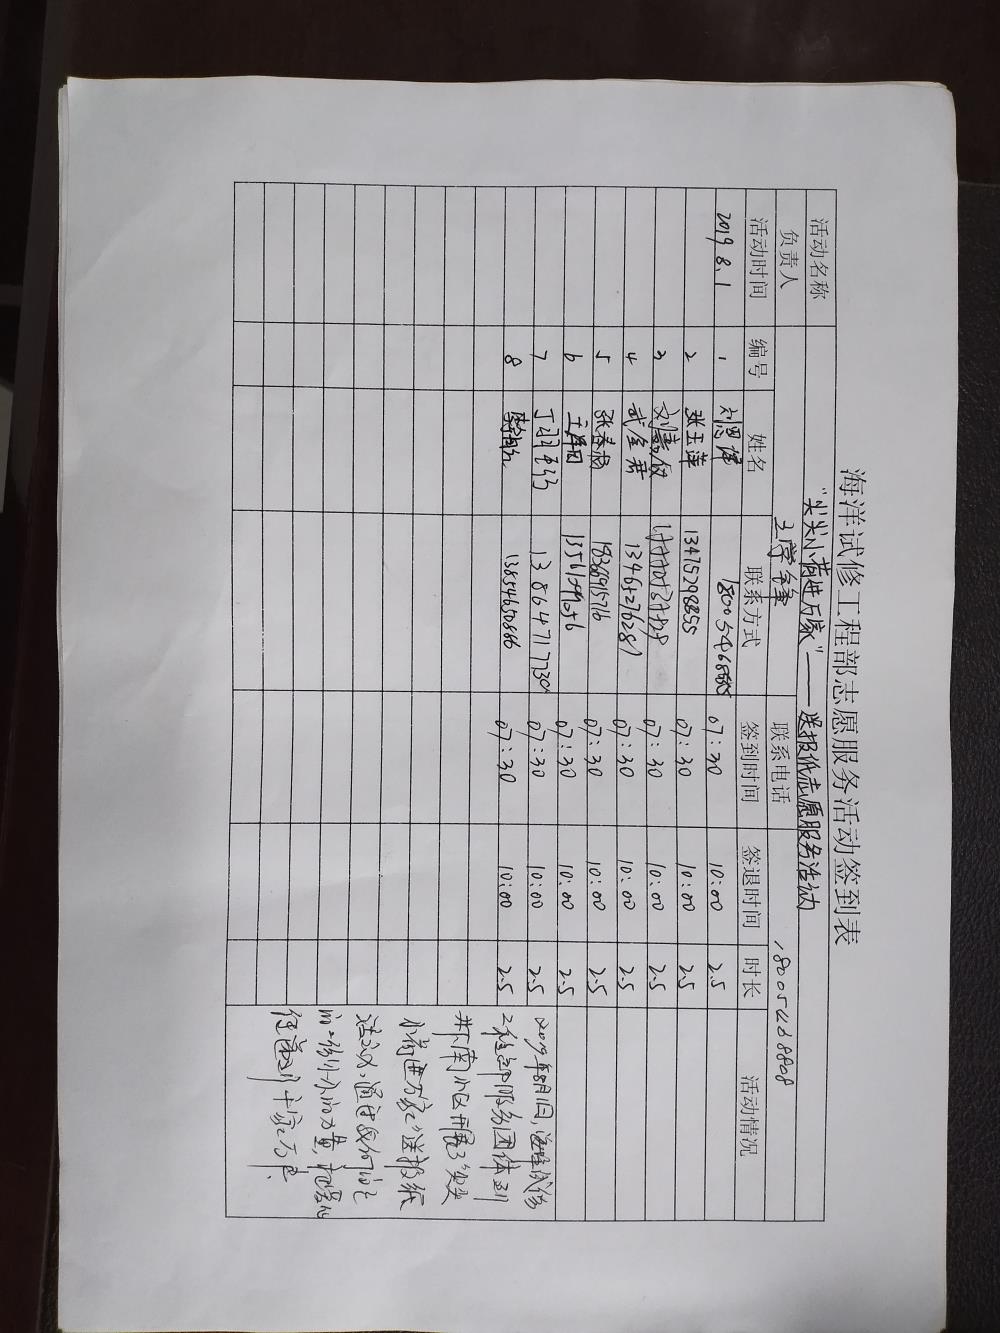 海洋试修工程部志愿服务活动签到表
活动名称 "尖尖小荷进万家"——送报纸志愿服务活动
负责人 联系电话 18005468808
活动时间 编号 姓名 联系方式 签到时间 签退时间 时长 活动情况
2019.8.1 1 刘思健 07:30 10:00 2.5
2 张玉萍 13475298855 07:30 10:00 2.5
3 07:30 10:00 2.5
4 武金君 13465276281 07:30 10:00 2.5
5 张春梅 18366915716 07:30 10:00 2.5
6 王泽田 07:30 10:00 2.5
7 13864717730 07:30 10:00 2.5
8 13854650866 07:30 10:00 2.5
2019年8月1日,海洋试修
工程部服务团体到
井下南小区开展了"尖尖
小荷进万家"送报纸
活动,通过我们的
一份小小的力量,把爱心
传递到千家万户.